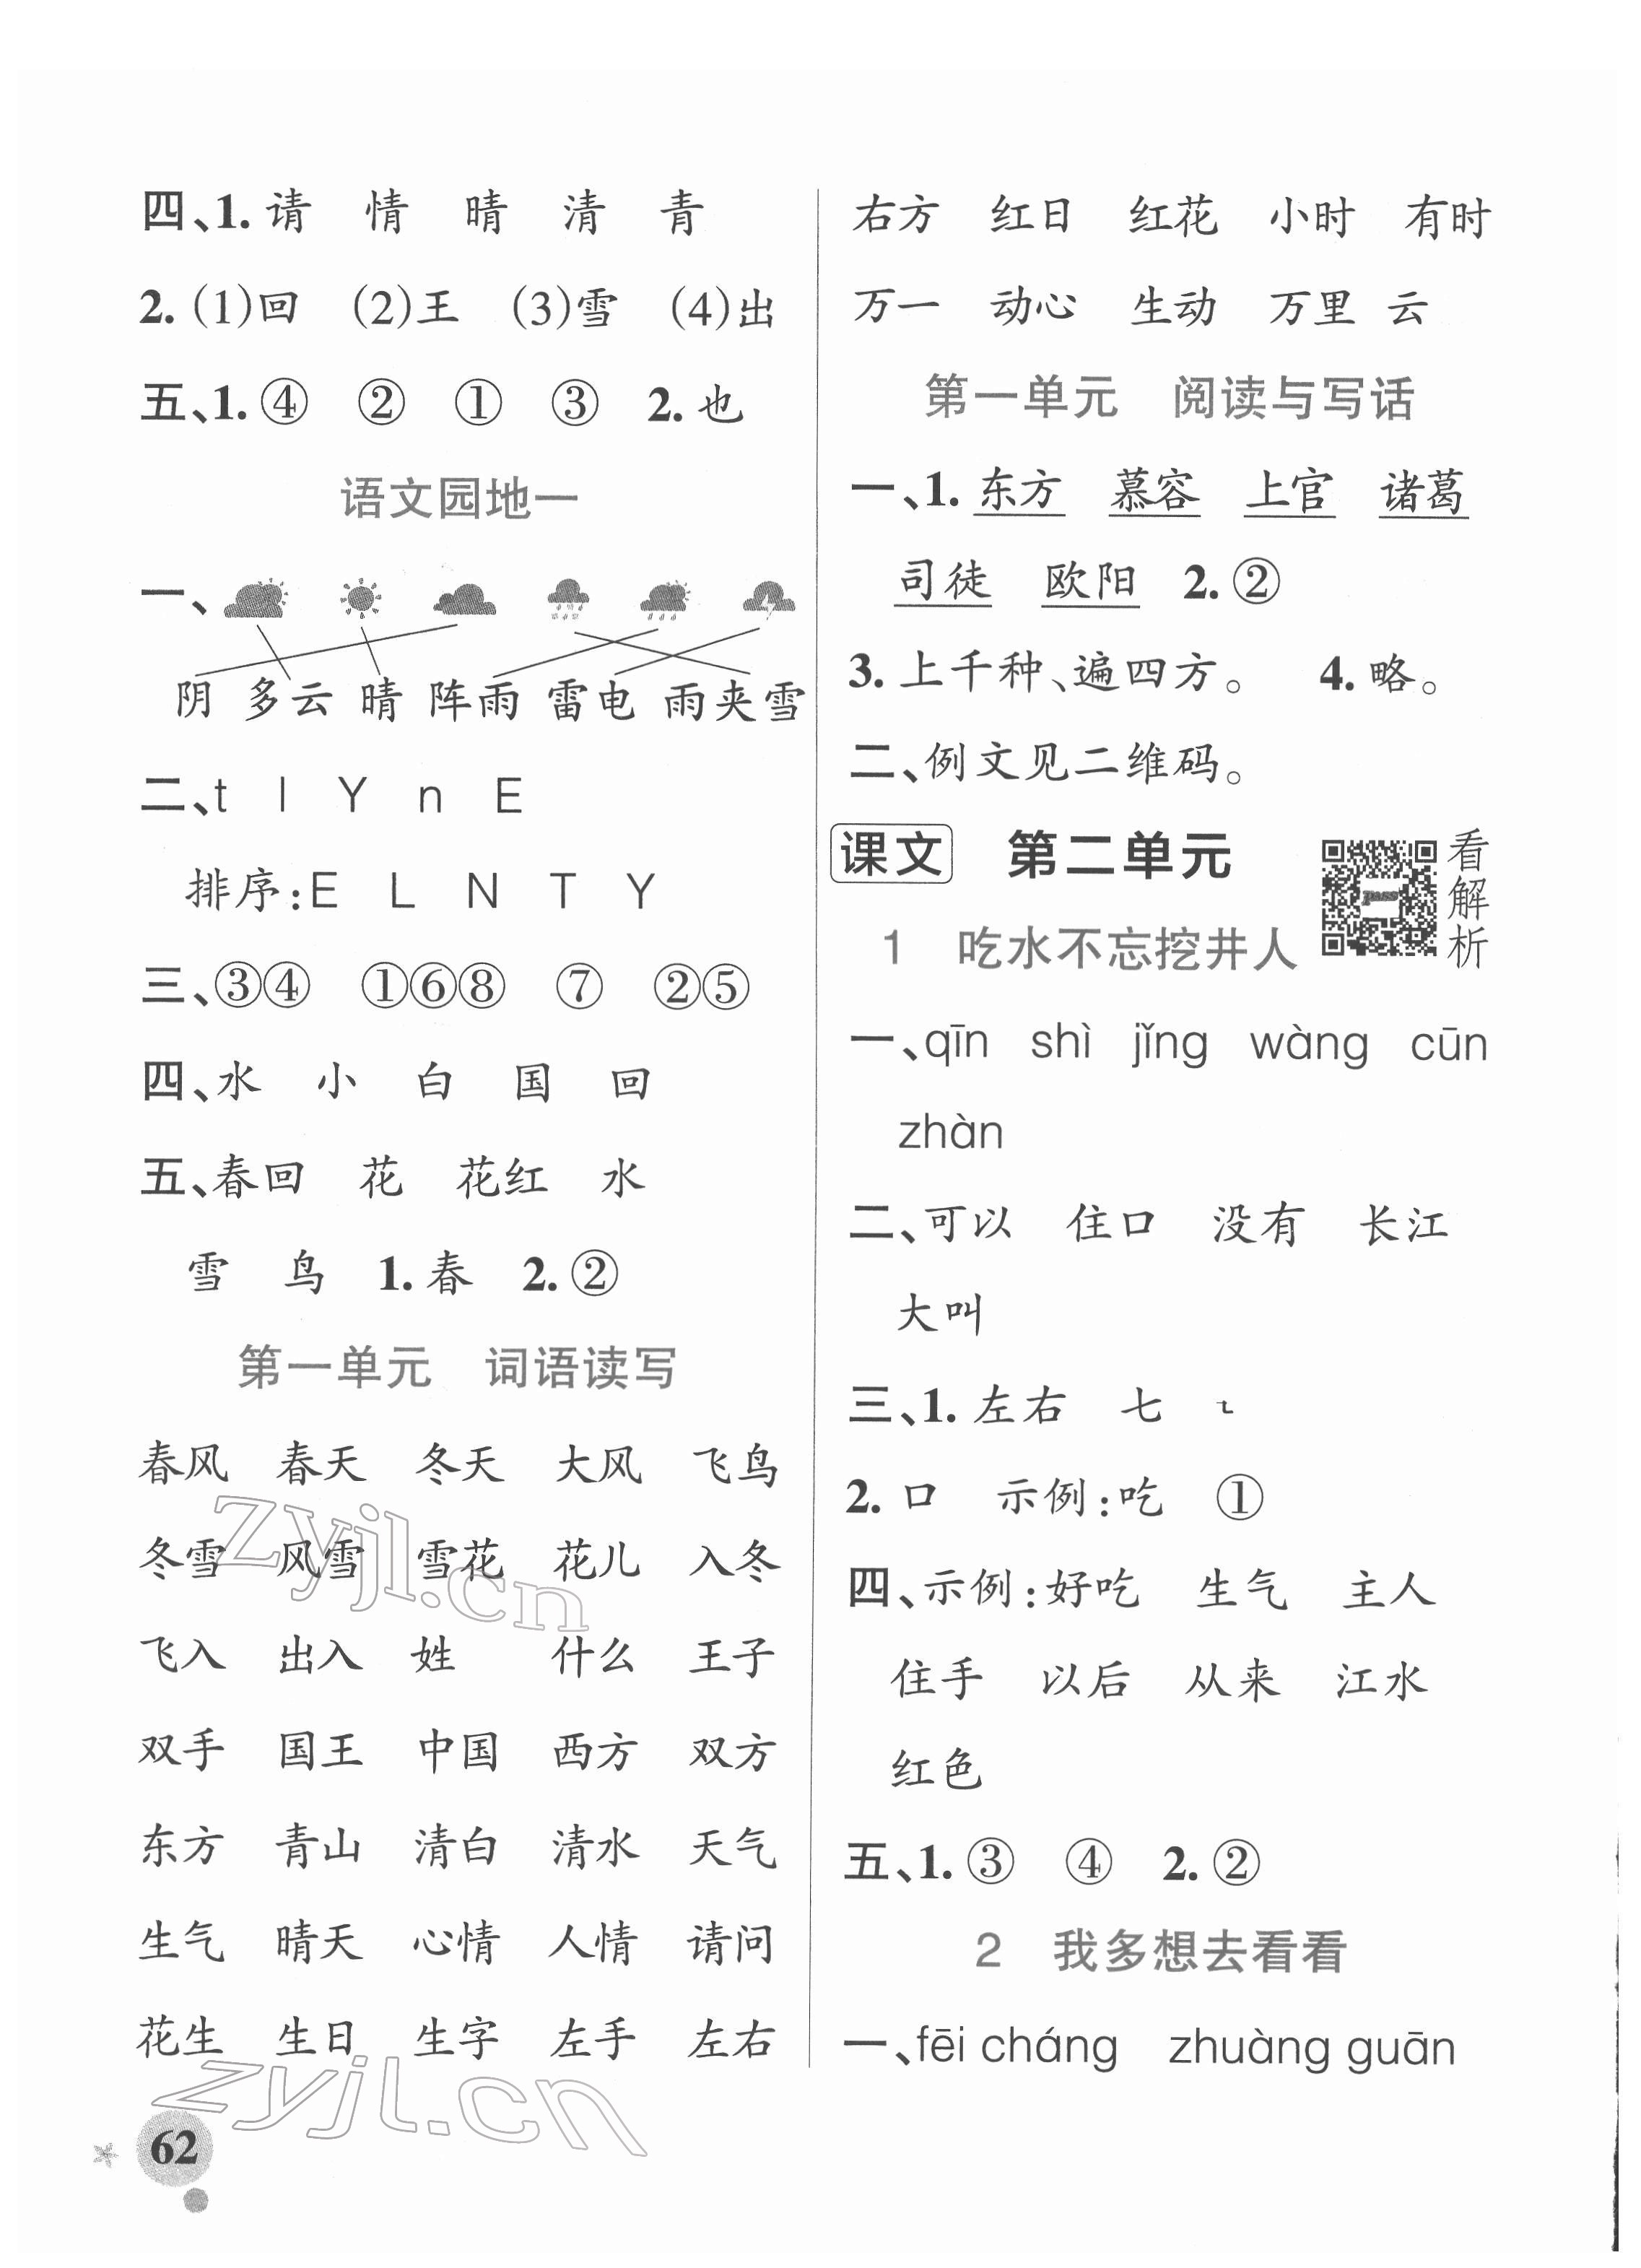 四、1. 请 情 晴 清 青
2. (1)回 (2)王 (3)雪 (4)出
五、1. ④ ② ① ③ 2. 也
语文园地一
一、
阴 多云 晴 阵雨 雷电 雨夹雪
二、t l Y n E
排序:E L N T Y
三、③④ ①⑥⑧ ⑦ ②⑤
四、水 小 白 国 回
五、春回 花 花红 水
雪 鸟 1. 春 2. ②
第一单元 词语读写
春风 春天 冬天 大风 飞鸟
冬雪 风雪 雪花 花儿 入冬
飞入 出入 姓 什么 王子
双手 国王 中国 西方 双方
东方 青山 清白 清水 天气
生气 晴天 心情 人情 请问
花生 生日 生字 左手 左右
右方 红日 红花 小时 有时
万一 动心 生动 万里 云
第一单元 阅读与写话
一、1. 东方 慕容 上官 诸葛
司徒 欧阳 2. ②
3. 上千种、遍四方。 4. 略。
二、例文见二维码。
课文 第二单元
看解析
pass
1 吃水不忘挖井人
一、qīn shì jǐng wàng cūn
zhàn
二、可以 住口 没有 长江
大叫
三、1. 左右 七 ㇀
2. 口 示例:吃 ①
四、示例:好吃 生气 主人
住手 以后 从来 江水
红色
五、1. ③ ④ 2. ②
2 我多想去看看
一、fēi cháng zhuàng guān
62
zyjl.cn
zyjl.cn